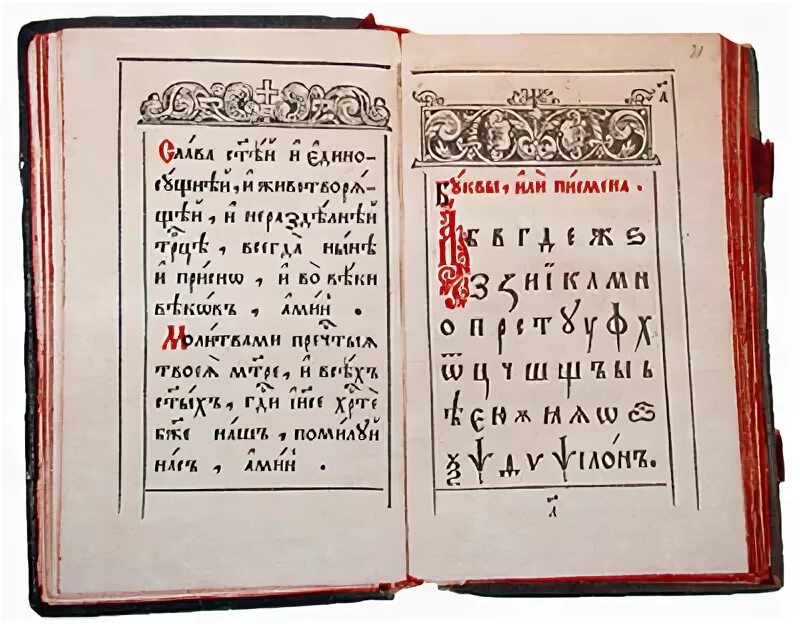 Сла́ва ст҃ѣ́й и҆ є҆ди́но-
су́щнѣй, и҆ животворѧ́-
щей, и҆ нераздѣ́лнѣй
трⷪ҇цѣ, всегда̀ ны́нѣ
и҆ при́снѡ, и҆ во̀ вѣ́ки
вѣ́кѡвъ, а҆ми́н.
Моли́твами пречⷭ҇тыѧ
твоеѧ̀ мт҃ре, и҆ всѣ́хъ
ст҃ы́хъ, гдⷭ҇и і҆и҃се хрⷭ҇те
бж҃е на́шъ, поми́луй
на́съ, а҆ми́н.
21
Бу́квы, и҆лѝ писмена.
А б в г д е ж ѕ
З ꙁ и ї к л м н
о п р с т ꙋ у ф х
ѿ ц ч ш щ ъ ы ь
ѣ є ю ѫ ꙗ ѧ ѡ ѽ
ѯ ѱ ѵ ѱіло́нъ.